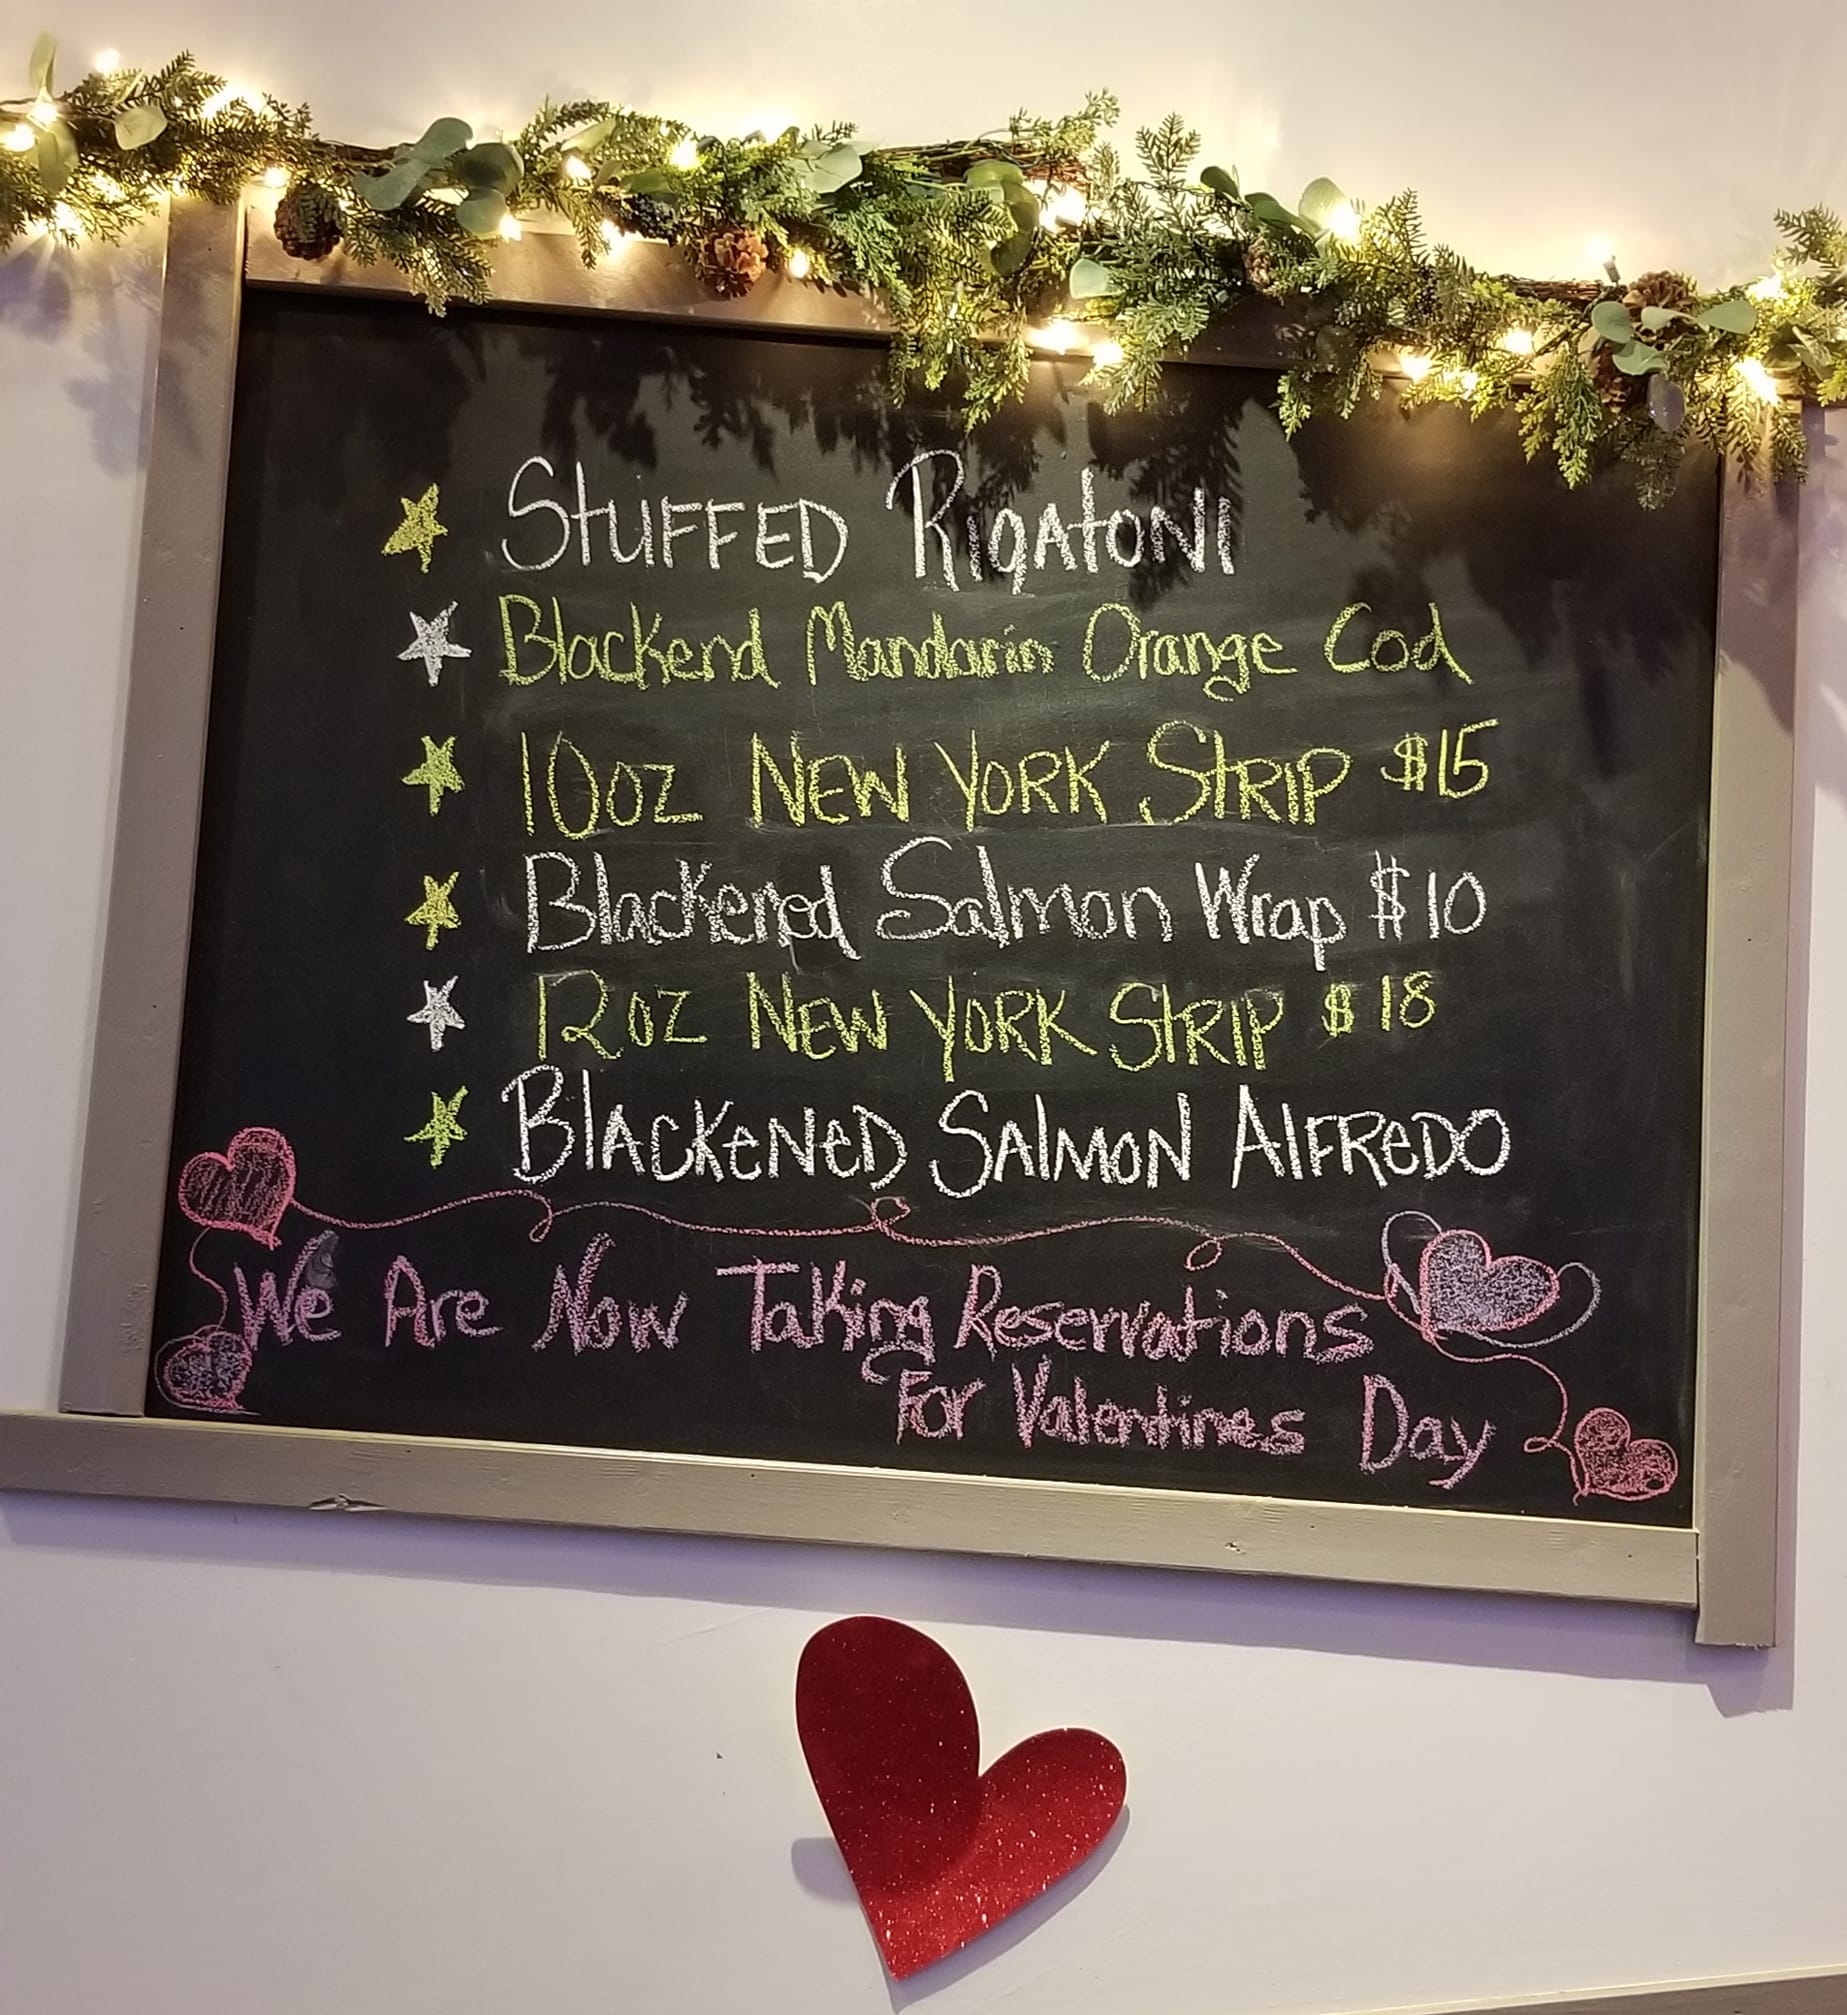 Stuffed Rigatoni
Blackend Mandarin Orange Cod
10oz New York Strip $15
Blackened Salmon Wrap $10
12oz New York Strip $18
Blackened Salmon Alfredo
We Are Now Taking Reservations
For Valentines Day